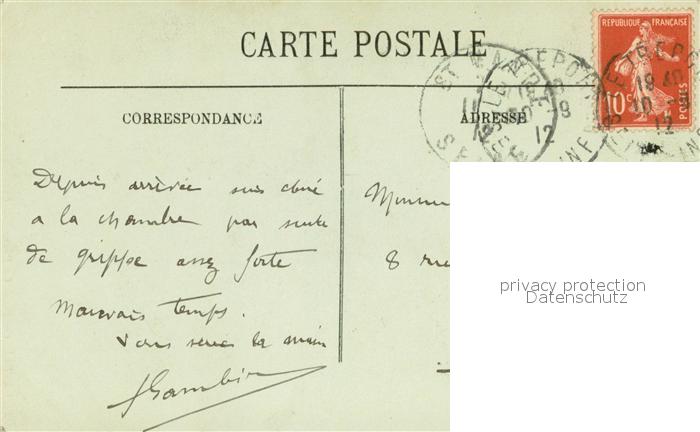 CARTE POSTALE
REPUBLIQUE FRANÇAISE
10c
POSTES
CORRESPONDANCE
ADRESSE
Depuis arrivée suis cloué
a la chambre par suite
de grippe assez forte
Mauvais temps.
Vous serre la main
8 rue
privacy protection
Datenschutz